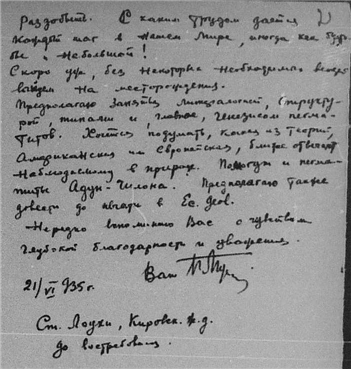 раздобыть. С каким трудом дается 2
каждый шаг в нашем мире, иногда как будто
бы и небольшой!
Скоро уж, без некоторых необходимых вещей
на месторождения.
Предполагаю заняться минералогией, структу-
рой, типами и, главное, генезисом пегма-
титов. Хочется подумать, какая из теорий,
Американская или Европейская, ближе отвечает
наблюдаемому в природе. Помогут и пегма-
титы Адун-Чилона. Предполагаю также
довести до печати в
Нередко вспоминаю Вас с чувством
глубокой благодарности и уважения.
Ваш
21/VI 935 г.
Ст. Лоухи, Кировск. ж.д.
до востребования.